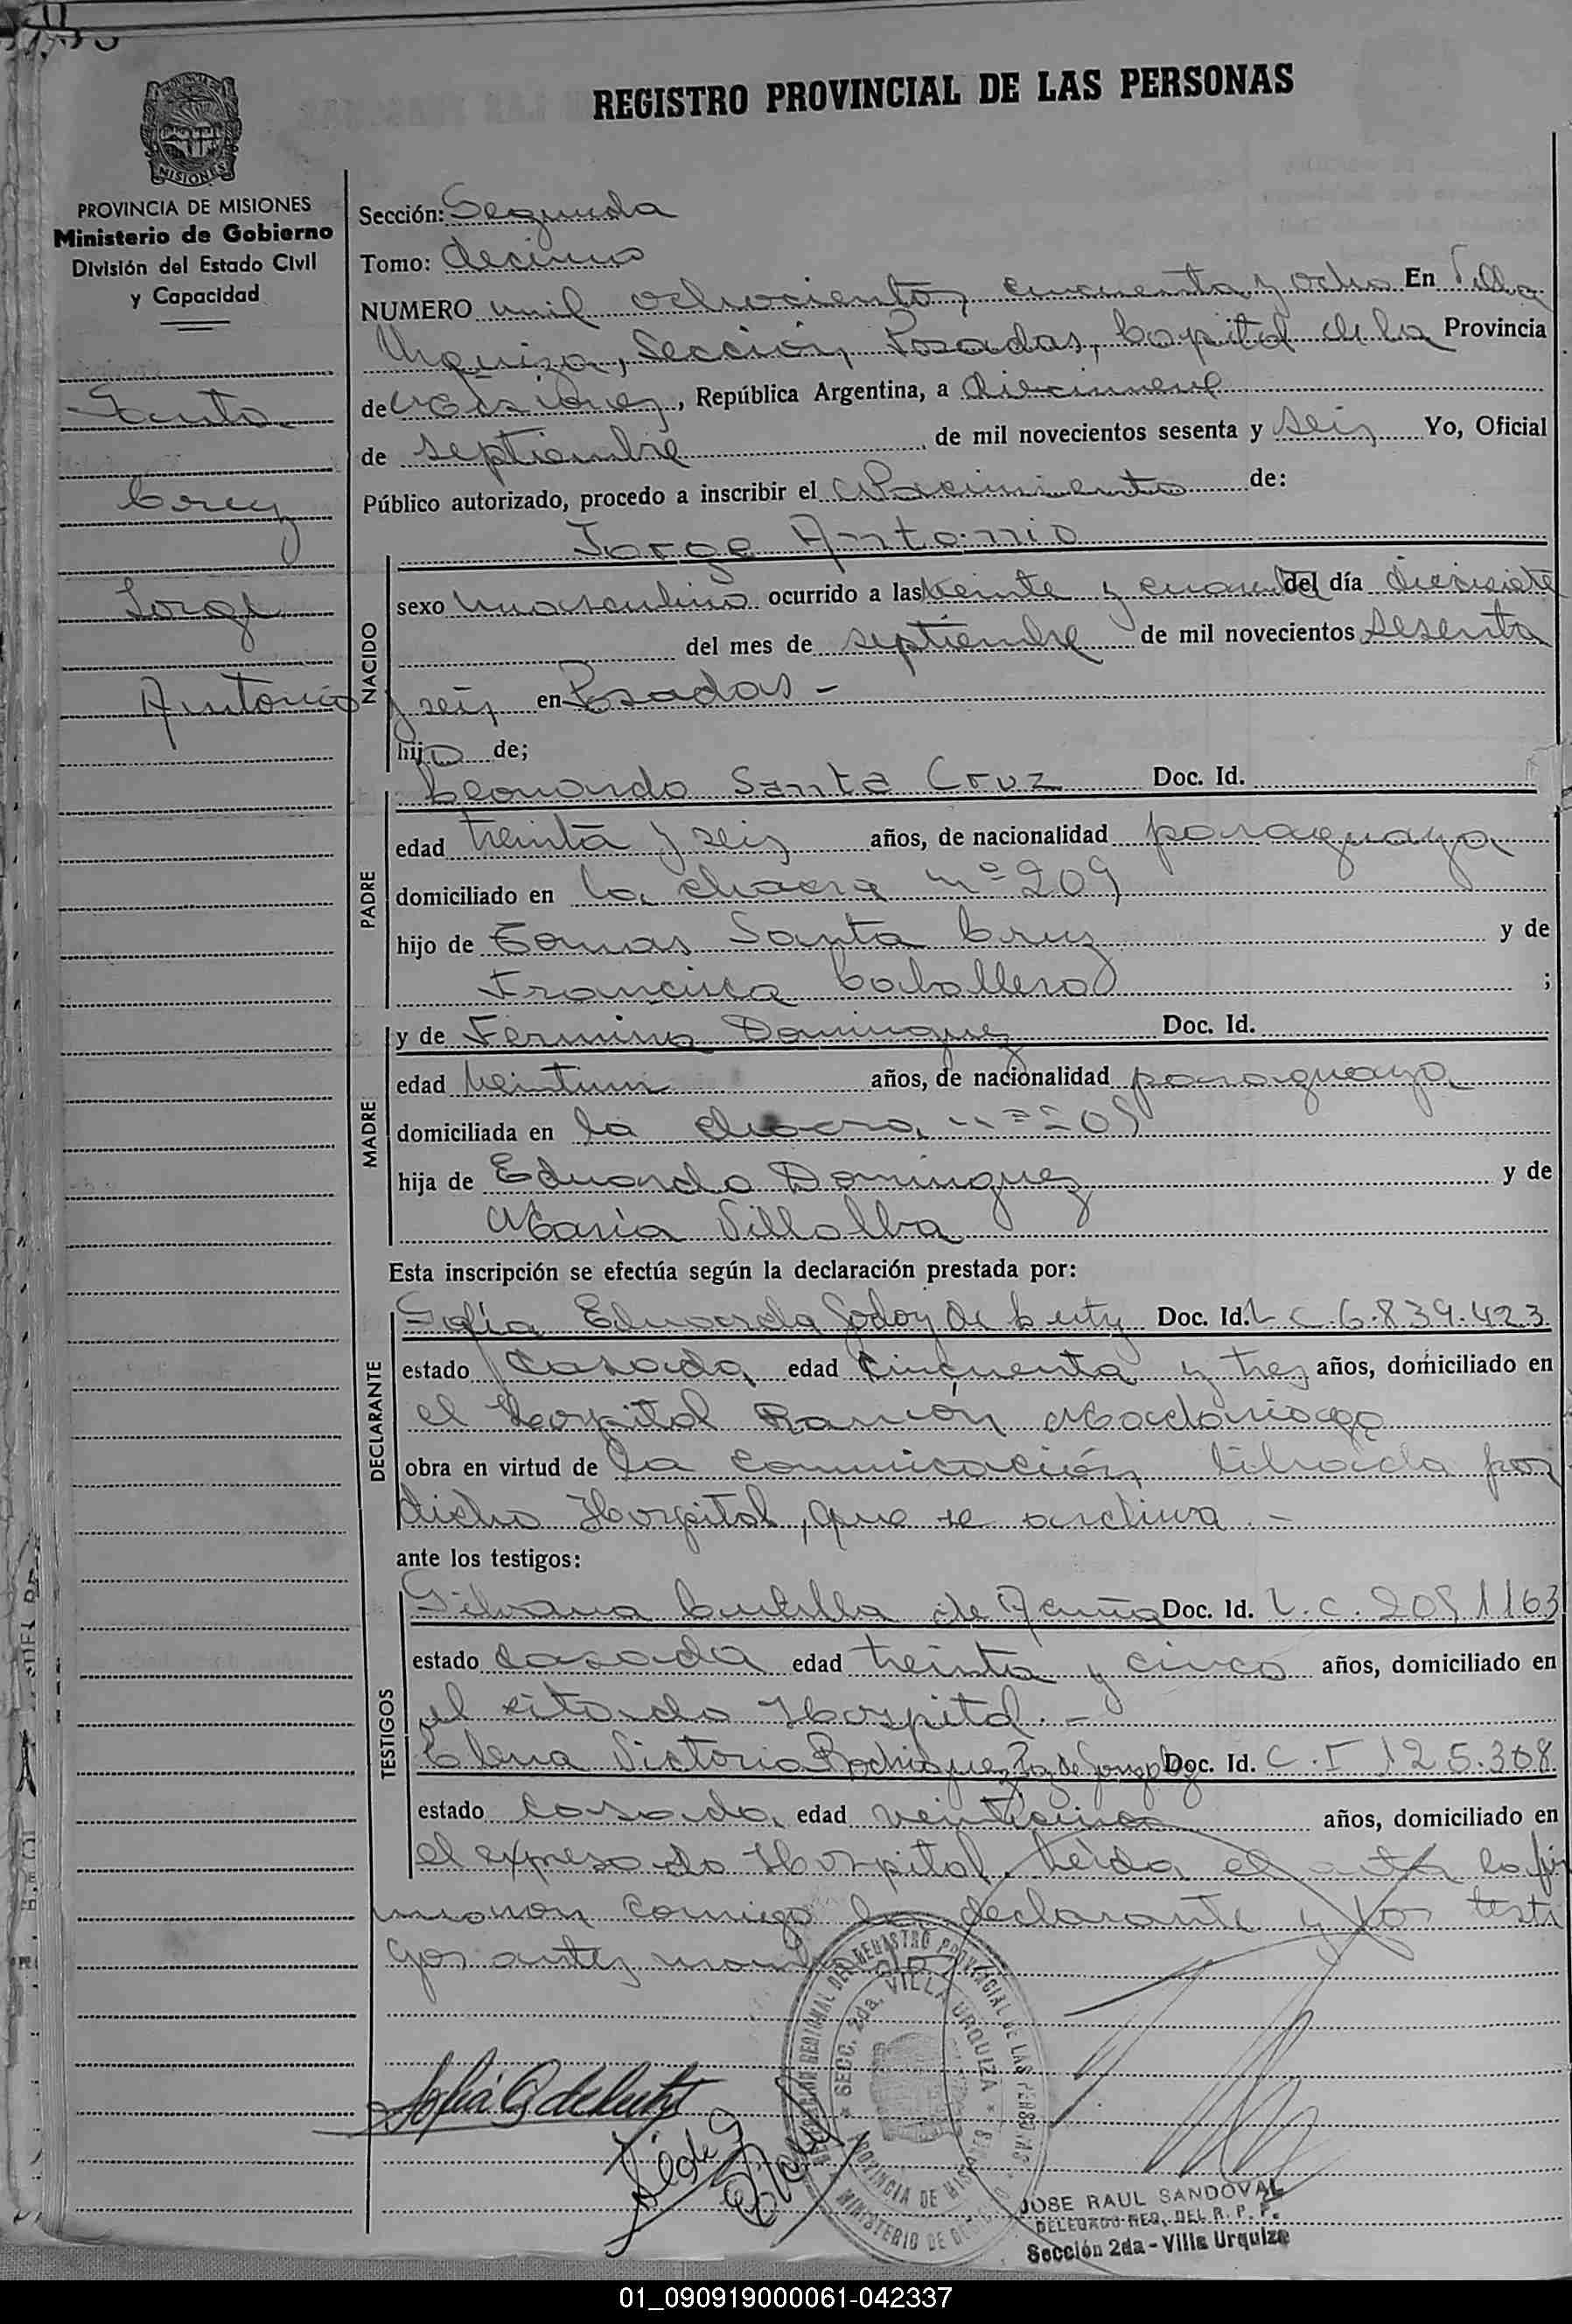 REGISTRO PROVINCIAL DE LAS PERSONAS
MISIONES
PROVINCIA DE MISIONES
Ministerio de Gobierno
División del Estado Civil
y Capacidad
Santa
Cruz
Jorge
Antonio
Sección: Segunda
Tomo: decimo
NUMERO mil ochocientos cincuenta y ocho En Villa
Urquiza, Sección Posadas, Capital de la Provincia
de Misiones, República Argentina, a diecinueve
de septiembre de mil novecientos sesenta y seis Yo, Oficial
Público autorizado, procedo a inscribir el Nacimiento de:
Jorge Antonio
NACIDO
sexo masculino ocurrido a las veinte y cuarenta del día diecisiete
del mes de septiembre de mil novecientos sesenta
y seis en Posadas -
hijo de;
PADRE
Leonardo Santa Cruz Doc. Id.
edad treinta y seis años, de nacionalidad paraguaya
domiciliado en la chacra nº 209
hijo de Tomas Santa Cruz y de
Francisca Caballero ;
MADRE
y de Fermina Dominguez Doc. Id.
edad veintiun años, de nacionalidad paraguaya
domiciliada en la chacra nº 209
hija de Eduardo Dominguez y de
María Villalba
Esta inscripción se efectúa según la declaración prestada por:
DECLARANTE
Sofía Eduarda Godoy de Doc. Id. L C 6.839.423
estado casada edad cincuenta y tres años, domiciliado en
el Hospital Ramón Madariaga
obra en virtud de la comunicación librada por
dicho Hospital, que se archiva. -
ante los testigos:
TESTIGOS
Silvana de Acuña Doc. Id. L.C. 2051163
estado casada edad treinta y cinco años, domiciliado en
el citado Hospital. -
Elena Victoria Rodriguez de Doc. Id. C. I 125.308
estado casada edad veinticinco años, domiciliado en
el expresado Hospital. Leída el acta la fir
maron conmigo la declarante y los testi
gos antes
DELEGACION REGIONAL DEL REGISTRO PROVINCIAL DE LAS PERSONAS
SECC. 2da. VILLA URQUIZA
PROVINCIA DE MISIONES
MINISTERIO DE GOBIERNO
JOSE RAUL SANDOVAL
DELEGADO REG. DEL R. P. P.
Sección 2da - Villa Urquiza
01_090919000061-042337